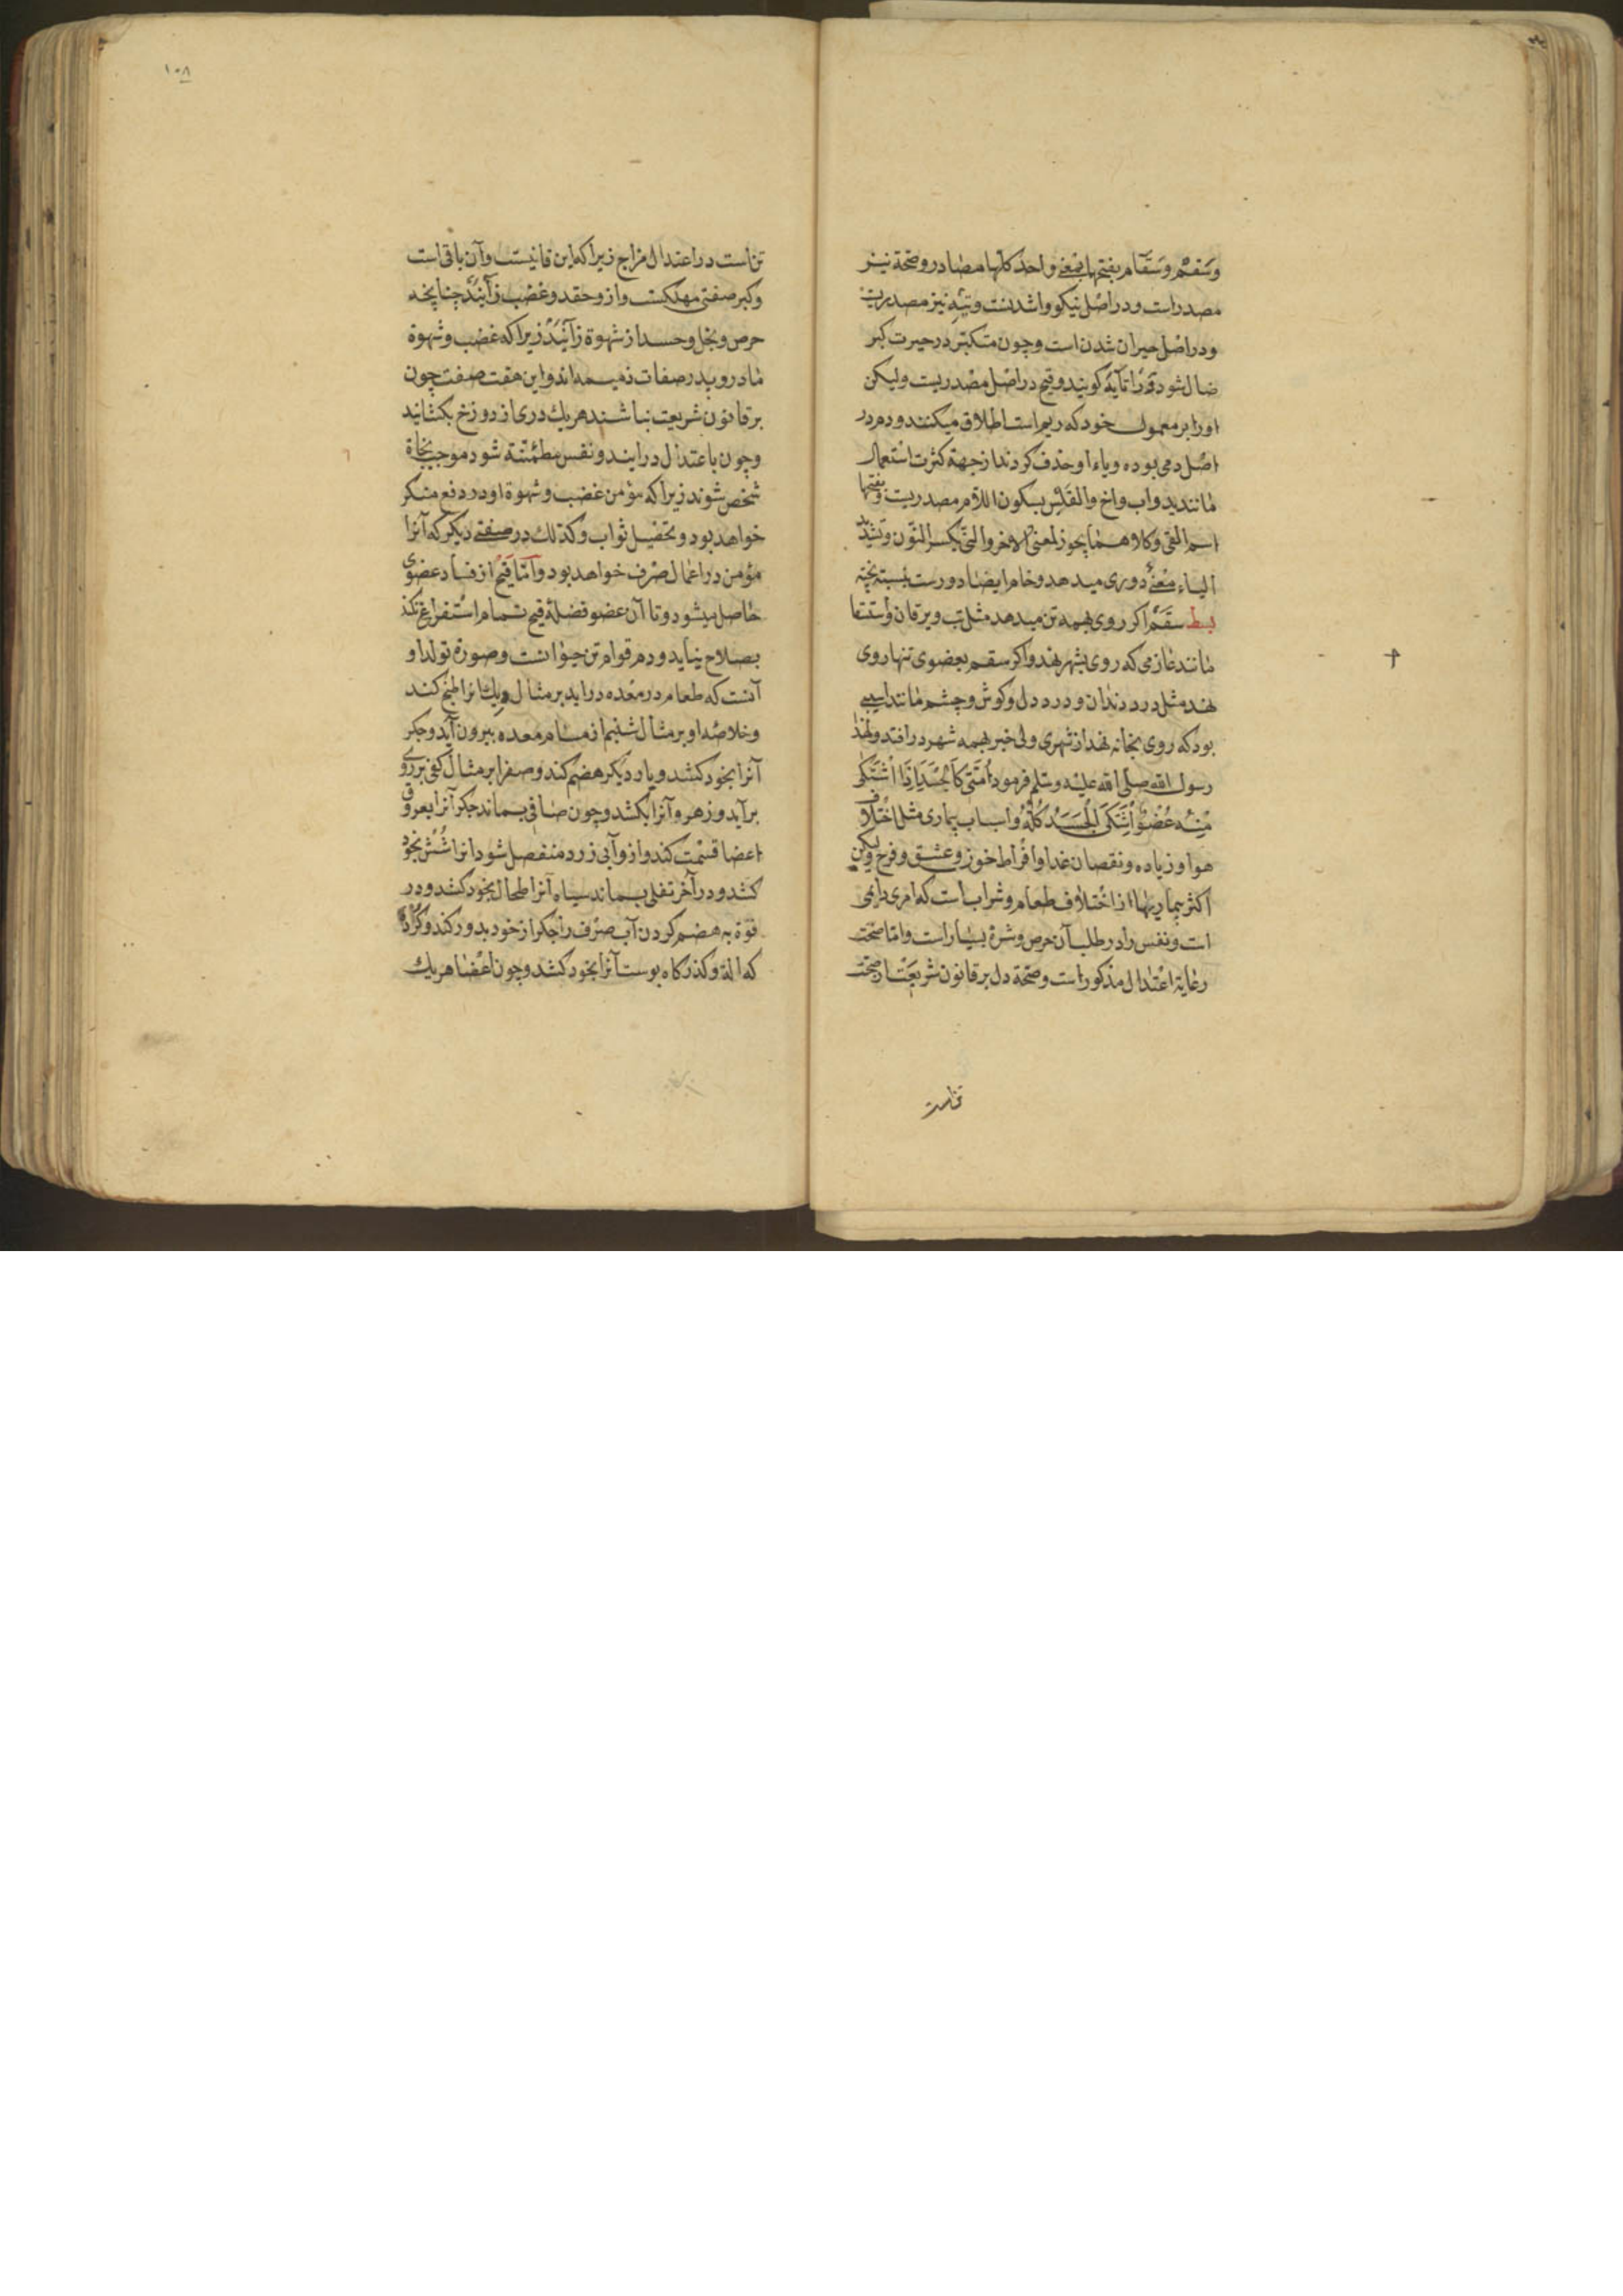 وسقم وسقام بفتحها بمعنی واحد کلها مصادر وصحة نیز
مصدر است ودر اصل نیکو واشدنست وتیه نیز مصدریت
ودر اصل حیران شدن است وچون متکبر در حیرت کبر
ضال شود تائه کویند وقیح در اصل مصدریت ولیکن
اورا بر معمول خود که ریم است اطلاق میکنند ودم در
اصل دمی بوده ویاء او حذف کردند از جهة کثرت استعمال
مانند ید واب واخ والقلس بسکون اللام مصدریت وبفتحها
اسم القی وکلاهما یجوز لمعنی الاخر والنی بکسر النون وتشدید
الیاء معنی دوری میدهد وخام ایضا دورست بنسبته پخته
بط سقم اکر روی بهمه تن میدهد مثل تب ویرقان واستسقا
مانند غازمی که روی بشهر نهد واکر سقم بعضوی تنها روی
نهد مثل درد دندان ودرد دل وکوش وچشم مانند
بود که روی بخانه نهد از شهری ولی خبر بهمه شهر در افتد ولهذا
رسول الله صلی الله علیه وسلم فرمود امتی کالجسد اذا اشتکی
منه عضوا اشتکی الجسد کله واسباب بیماری مثل اختلاف
هوا وزیاده ونقصان غدا وافراط خوف وعشق وفرح ولیکن
اکثر بیماریها از اختلاف طعام وشراب است که امری دایمی
است ونفس را در طلب آن حرص وشره بسیار است واما صحت
رعایة اعتدال مذکور است وصحة دل بر قانون شریعت از صحت
تن است
۱۰۸
تن است در اعتدال مزاج زیرا که این فانیست وآن باقی است
وکبر صفتی مهلکست واز وحقد وغضب زآیند چنانچه
حرص وبخل وحسد از شهوة زآیند زیرا که غضب وشهوة
مادر وپدر صفات ذمیمه اند واین هفت صفت چون
بر قانون شریعت نباشند هر یک دری از دوزخ بکشایند
وچون باعتدال در ایند ونفس مطمئنة شود موجب نجاة
شخص شوند زیرا که مؤمن غضب وشهوة او در دفع منکر
خواهد بود وتحصیل ثواب وکذلک در صفتی دیکر که آنرا
مؤمن در اعمال صرف خواهد بود واما قیح از فساد عضوی
حاصل میشود وتا آن عضو فضله قیح تمام استفراغ نکند
بصلاح نیاید ودم قوام تن حیوانست وصورة تولد او
آنست که طعام در معده در اید بر مثال دیک انرا طبخ کند
وخلاصه او بر مثال شبنم از مسام معده بیرون آید وجکر
آنرا بخود کشد وبار دیکر هضم کند وصفرا بر مثال کفی بر روی
برآید وزهره آنرا بکشد وچون صافی بماند جکر آنرا بعروق
اعضا قسمت کند واز وآبی زرد منفصل شود انرا شش بخود
کشد ودر آخر ثفلی بماند سیاه آنرا طحال بخود کشد ودر
قوة به هضم کردن آب صرف را جکر از خود بدور کند وکرده
که الة وکذرکاه بوست آنرا بخود کشد وچون اعضا هر یک